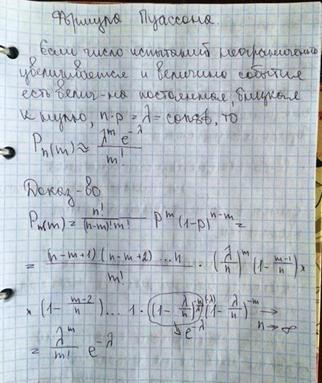 Формула Пуассона
Если число испытаний неограниченно
увеличивается и величина события
есть велич-на постоянная, близкая
к нулю, n·p = λ = const, то
Pn(m) ≈ λ^m e^-λ / m!
Доказ-во
Pn(m) = n! / (n-m)! m! p^m (1-p)^n-m =
= (n-m+1)(n-m+2)...n / m! · (λ/n)^m (1 - m-1/n) ×
× (1 - m-2/n) ... 1 · (1 - λ/n) (1 - λ/n)^-m →
→ e^-λ n→∞
= λ^m / m! e^-λ